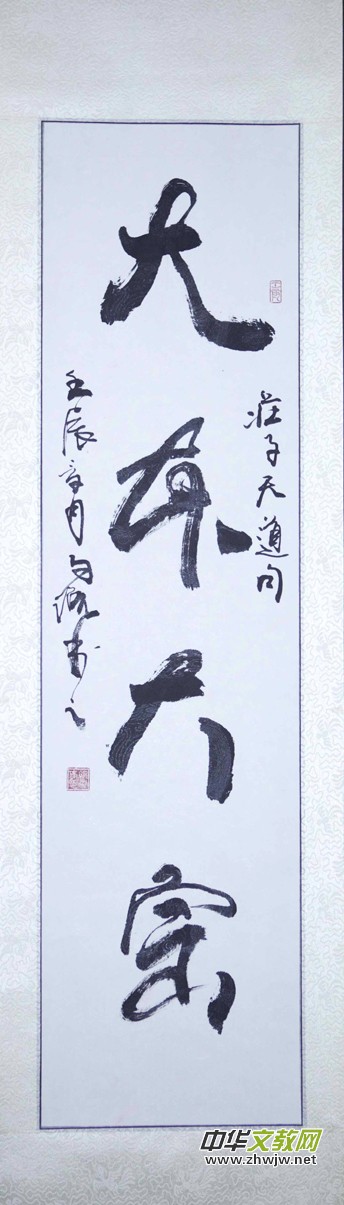 莊子天道句
大本大宗
壬辰 月 書之
中华文教网
www.zhwjw.net